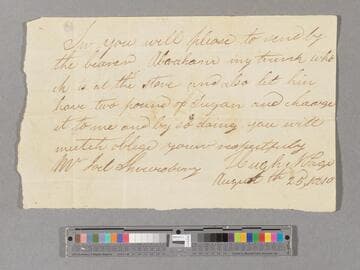 Sir you will please to send by
the bearer Abraham my trunk whi
ch is at the store and also let him
have two pound of Sugar and chaarge
it to me and by so doing you will
mutch oblege yours respectfuly
Mr Joel Shrewsbury Hugh N Page
August th 25